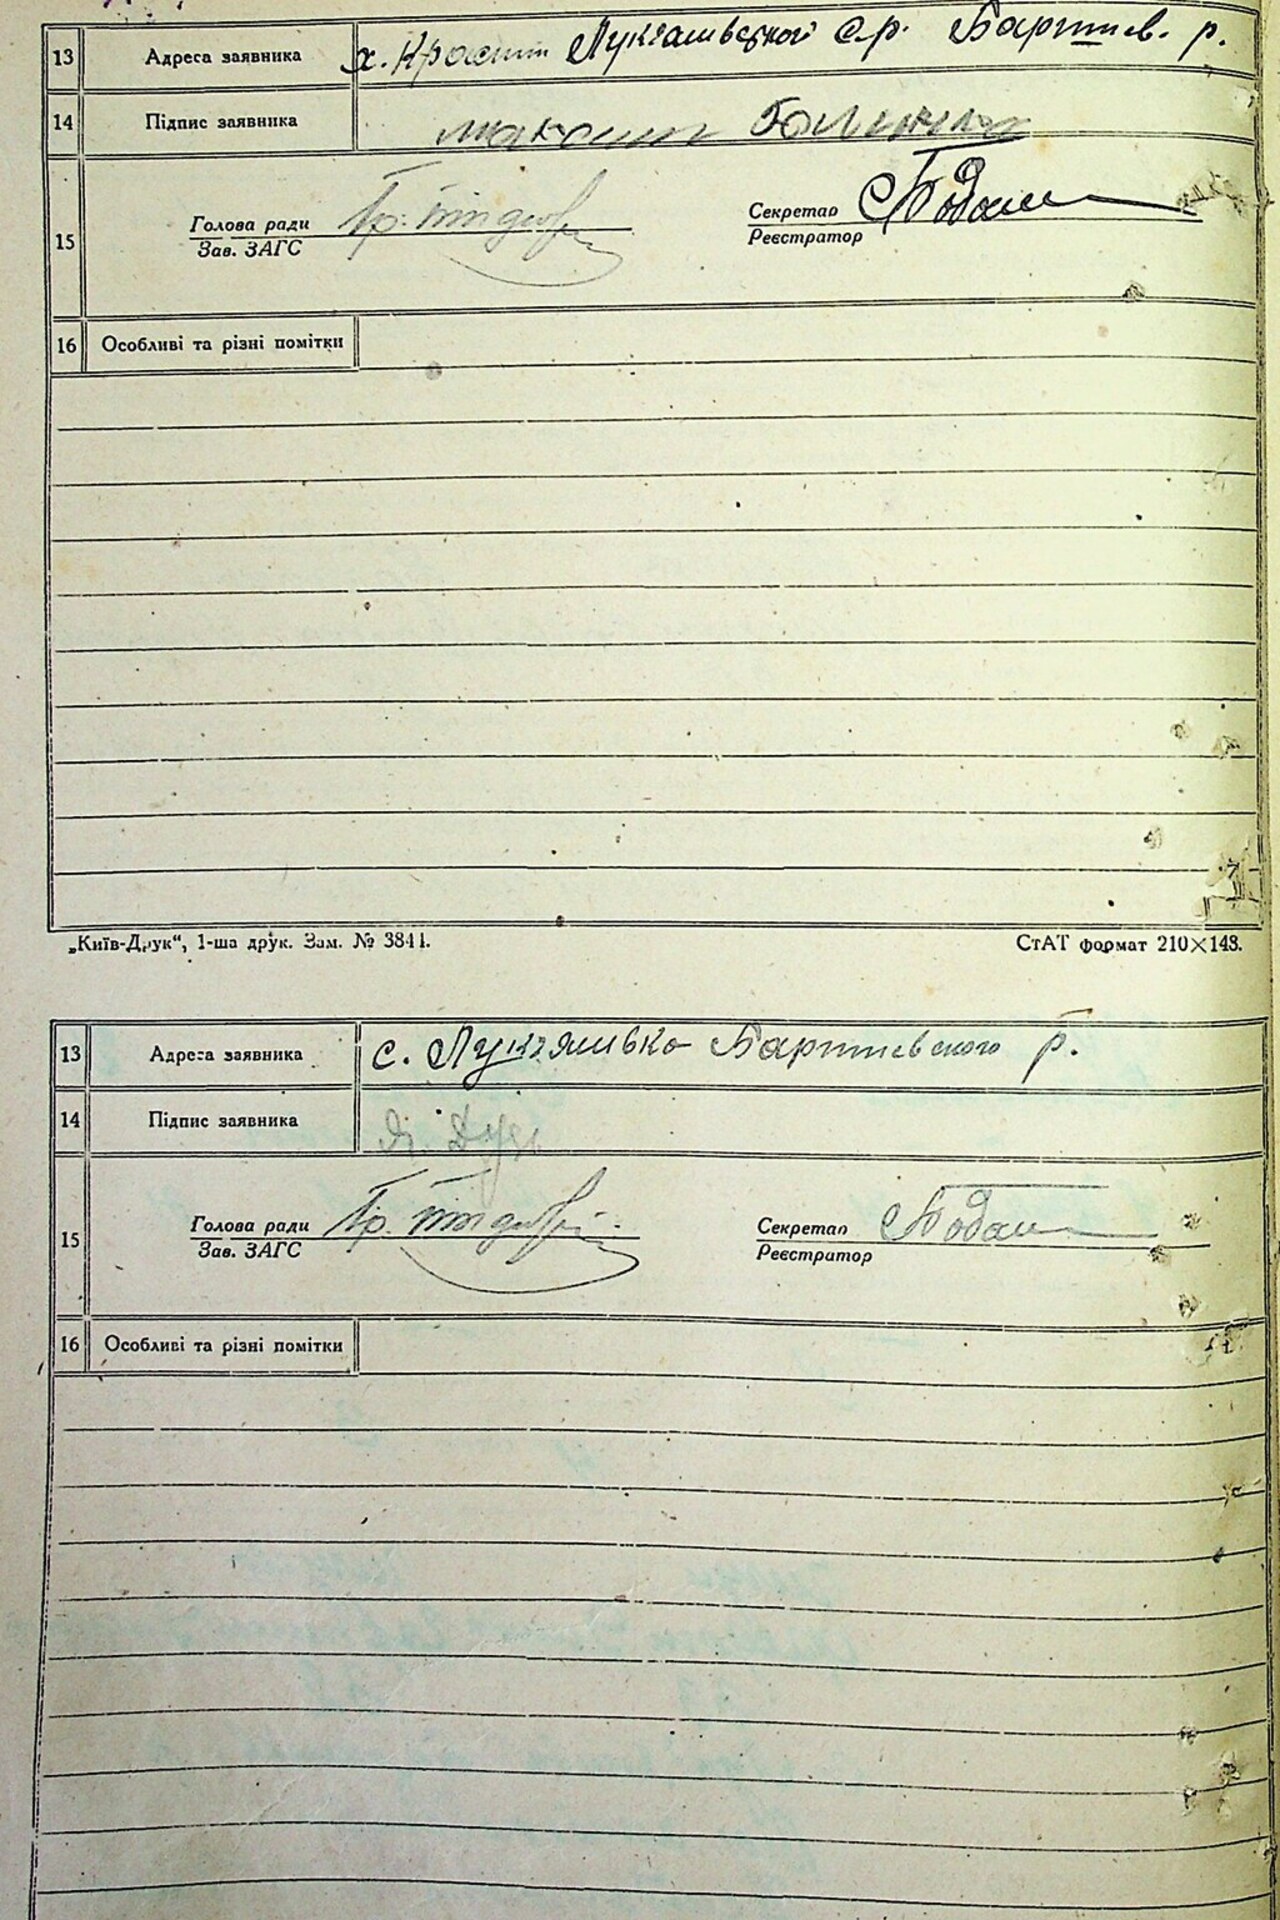 13 Адреса заявника х. Красний Лукашівської с.р. Баришів. р.
14 Підпис заявника Максим
15 Голова ради Гр.
Зав. ЗАГС
Секретар
Реєстратор
16 Особливі та різні помітки
„Київ-Друк“, 1-ша друк. Зам. № 3841. СтАТ формат 210×148.
13 Адреса заявника с. Лукяшивка Баришевского р.
14 Підпис заявника
15 Голова ради Гр.
Зав. ЗАГС
Секретар
Реєстратор
16 Особливі та різні помітки